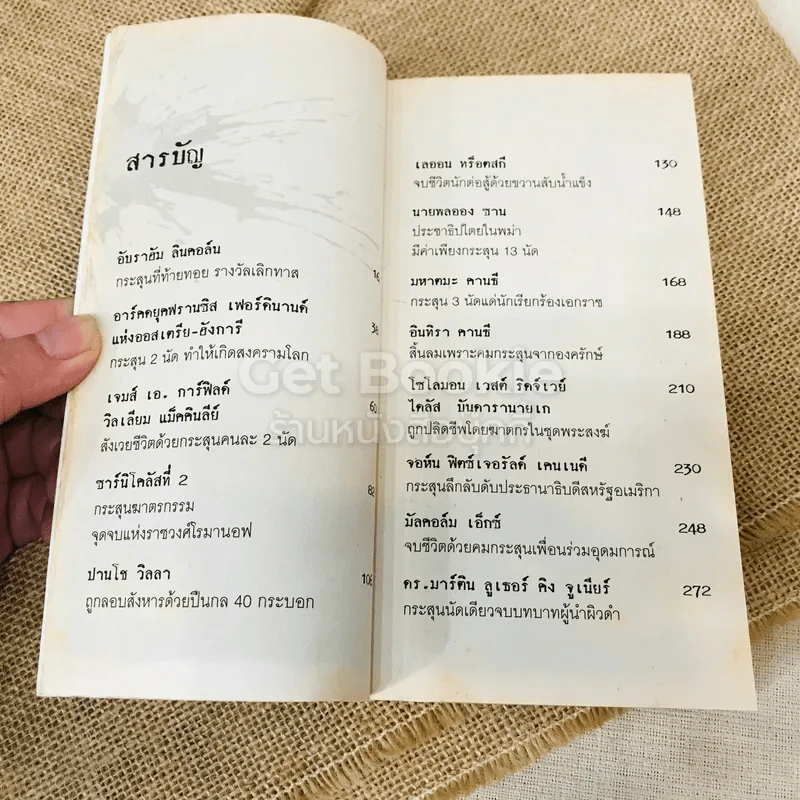 สารบัญ
อับราฮัม ลินคอล์น
กระสุนที่ท้ายทอย รางวัลเลิกทาส 16
อาร์คดยุคฟรานซิส เฟอร์ดินานด์
แห่งออสเตรีย-ฮังการี 38
กระสุน 2 นัด ทำให้เกิดสงครามโลก
เจมส์ เอ. การ์ฟิลด์
วิลเลียม แม็คคินลีย์ 60
สังเวยชีวิตด้วยกระสุนคนละ 2 นัด
ซาร์นิโคลัสที่ 2 82
กระสุนฆาตกรรม
จุดจบแห่งราชวงศ์โรมานอฟ
ปานโช วิลลา 106
ถูกลอบสังหารด้วยปืนกล 40 กระบอก
เลออน ทร็อตสกี 130
จบชีวิตนักต่อสู้ด้วยขวานสับน้ำแข็ง
นายพลออง ซาน 148
ประชาธิปไตยในพม่า
มีค่าเพียงกระสุน 13 นัด
มหาตมะ คานธี 168
กระสุน 3 นัดแด่นักเรียกร้องเอกราช
อินทิรา คานธี 188
สิ้นลมเพราะคมกระสุนจากองครักษ์
โซโลมอน เวสต์ ริดจ์เวย์ 210
ไดลัส บันดารานายเก
ถูกปลิดชีพโดยฆาตกรในชุดพระสงฆ์
จอห์น ฟิตซ์เจอรัลด์ เคนเนดี 230
กระสุนลึกลับดับประธานาธิบดีสหรัฐอเมริกา
มัลคอล์ม เอ็กซ์ 248
จบชีวิตด้วยคมกระสุนเพื่อนร่วมอุดมการณ์
ดร.มาร์ติน ลูเธอร์ คิง จูเนียร์ 272
กระสุนนัดเดียวจบบทบาทผู้นำผิวดำ
Get Bookie
ร้านหนังสือบุ๊คกี้